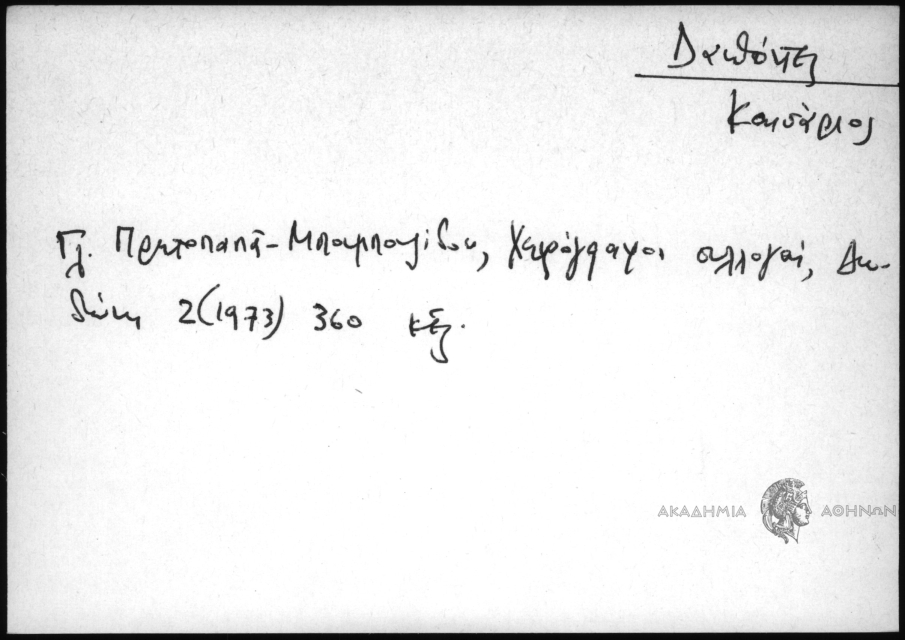 Δαπόντες
Καισάριος
Γλ. Πρωτοπαπᾶ-Μπουμπουλίδου, Χειρόγραφοι συλλογαί, Δω-
δώνη 2(1973) 360 κἑξ.
ΑΚΑΔΗΜΙΑ ΑΘΗΝΩΝ